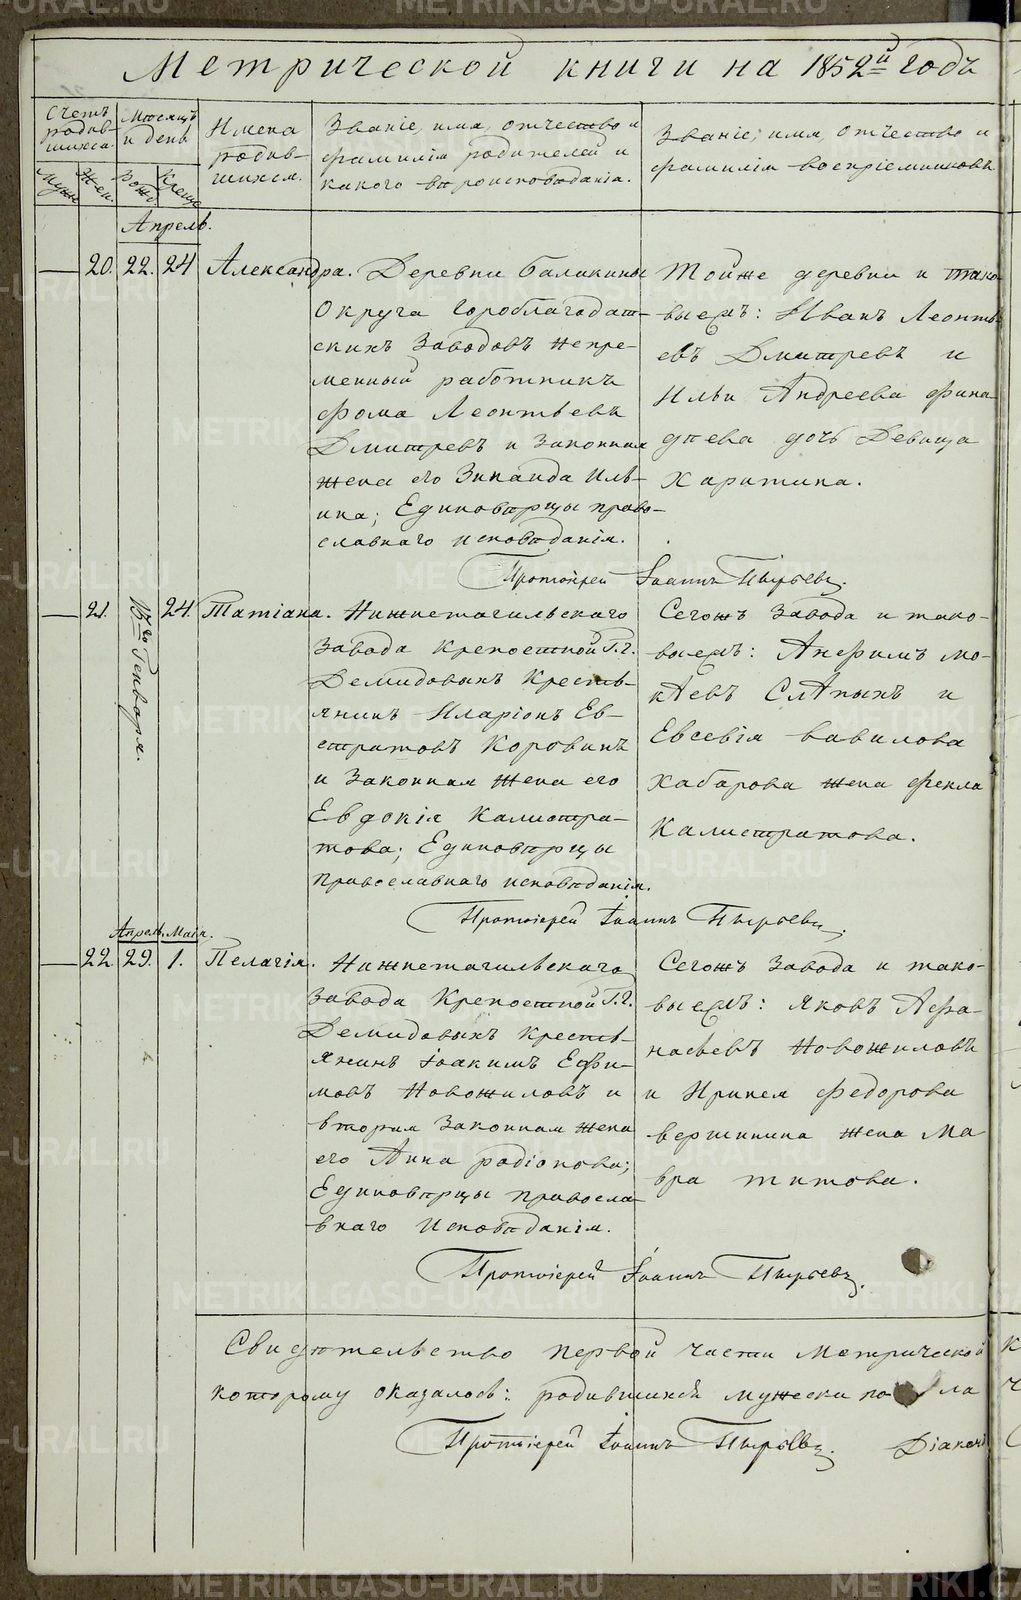 Метрической книги на 1852й годъ
Счетъ родив-шихся
Мужес. Жен.
Месяцъ и день
Рожд. Крещ.
Имена родив-шихся.
Званіе, имя, отчество и
фамилія родителей и
какого вѣроисповѣданія.
Званіе, имя, отчество и
фамилія воспріемниковъ
Апрель.
— 20. 22. 24 Александра.
Деревни Балакиной
Округа Гороблагодат-
скихъ Заводовъ Непре-
менный работникъ
Фома Леонтьевъ
Дмитревъ и Законная
жена его Зинаида Иль-
ина; Единовѣрцы право-
славнаго исповѣданія.
Тойже деревни и тако-
выежъ: Иванъ Леонть-
евъ Дмитревъ и
Ильи Андреева Фина-
деева дочь Девица
Харитина.
Протоіерей Іоаннъ Пырьевъ.
— 21. 13го Генваря. 24. Татіана.
Нижнетагильскаго
Завода Крепостной Г.г.
Демидовыхъ Кресть-
янинъ Иларіонъ Ев-
стратовъ Коровинъ
и Законная жена его
Евдокія Калистра-
това; Единовѣрцы
Православнаго исповѣданія.
Сегожъ Завода и тако-
выежъ: Анфимъ Мо-
кѣевъ Слѣпыхъ и
Евсевія Вавилова
Хабарова жена Фекла
Калистратова.
Протоіерей Іоаннъ Пырьевъ.
Апрель. Маія.
— 22. 29. 1. Пелагія.
Нижнетагильскаго
Завода Крепостной Г.г.
Демидовыхъ Кресть-
янинъ Іоакимъ Ефи-
мовъ Новожиловъ и
вторая Законная жена
его Анна Родіонова;
Единовѣрцы Правосла-
внаго Исповѣданія.
Сегожъ Завода и тако-
выежъ: Яковъ Афа-
насьевъ Новожиловъ
и Иринея Федорова
Вершинина жена Ма
вра Титова.
Протоіерей Іоаннъ Пырьевъ.
Свидѣтельство первой части Метрической
которому оказалось: родившихся мужеска по ла
Протоіерей Іоаннъ Пырьевъ. Діаконъ
METRIKI.GASO-URAL.RU